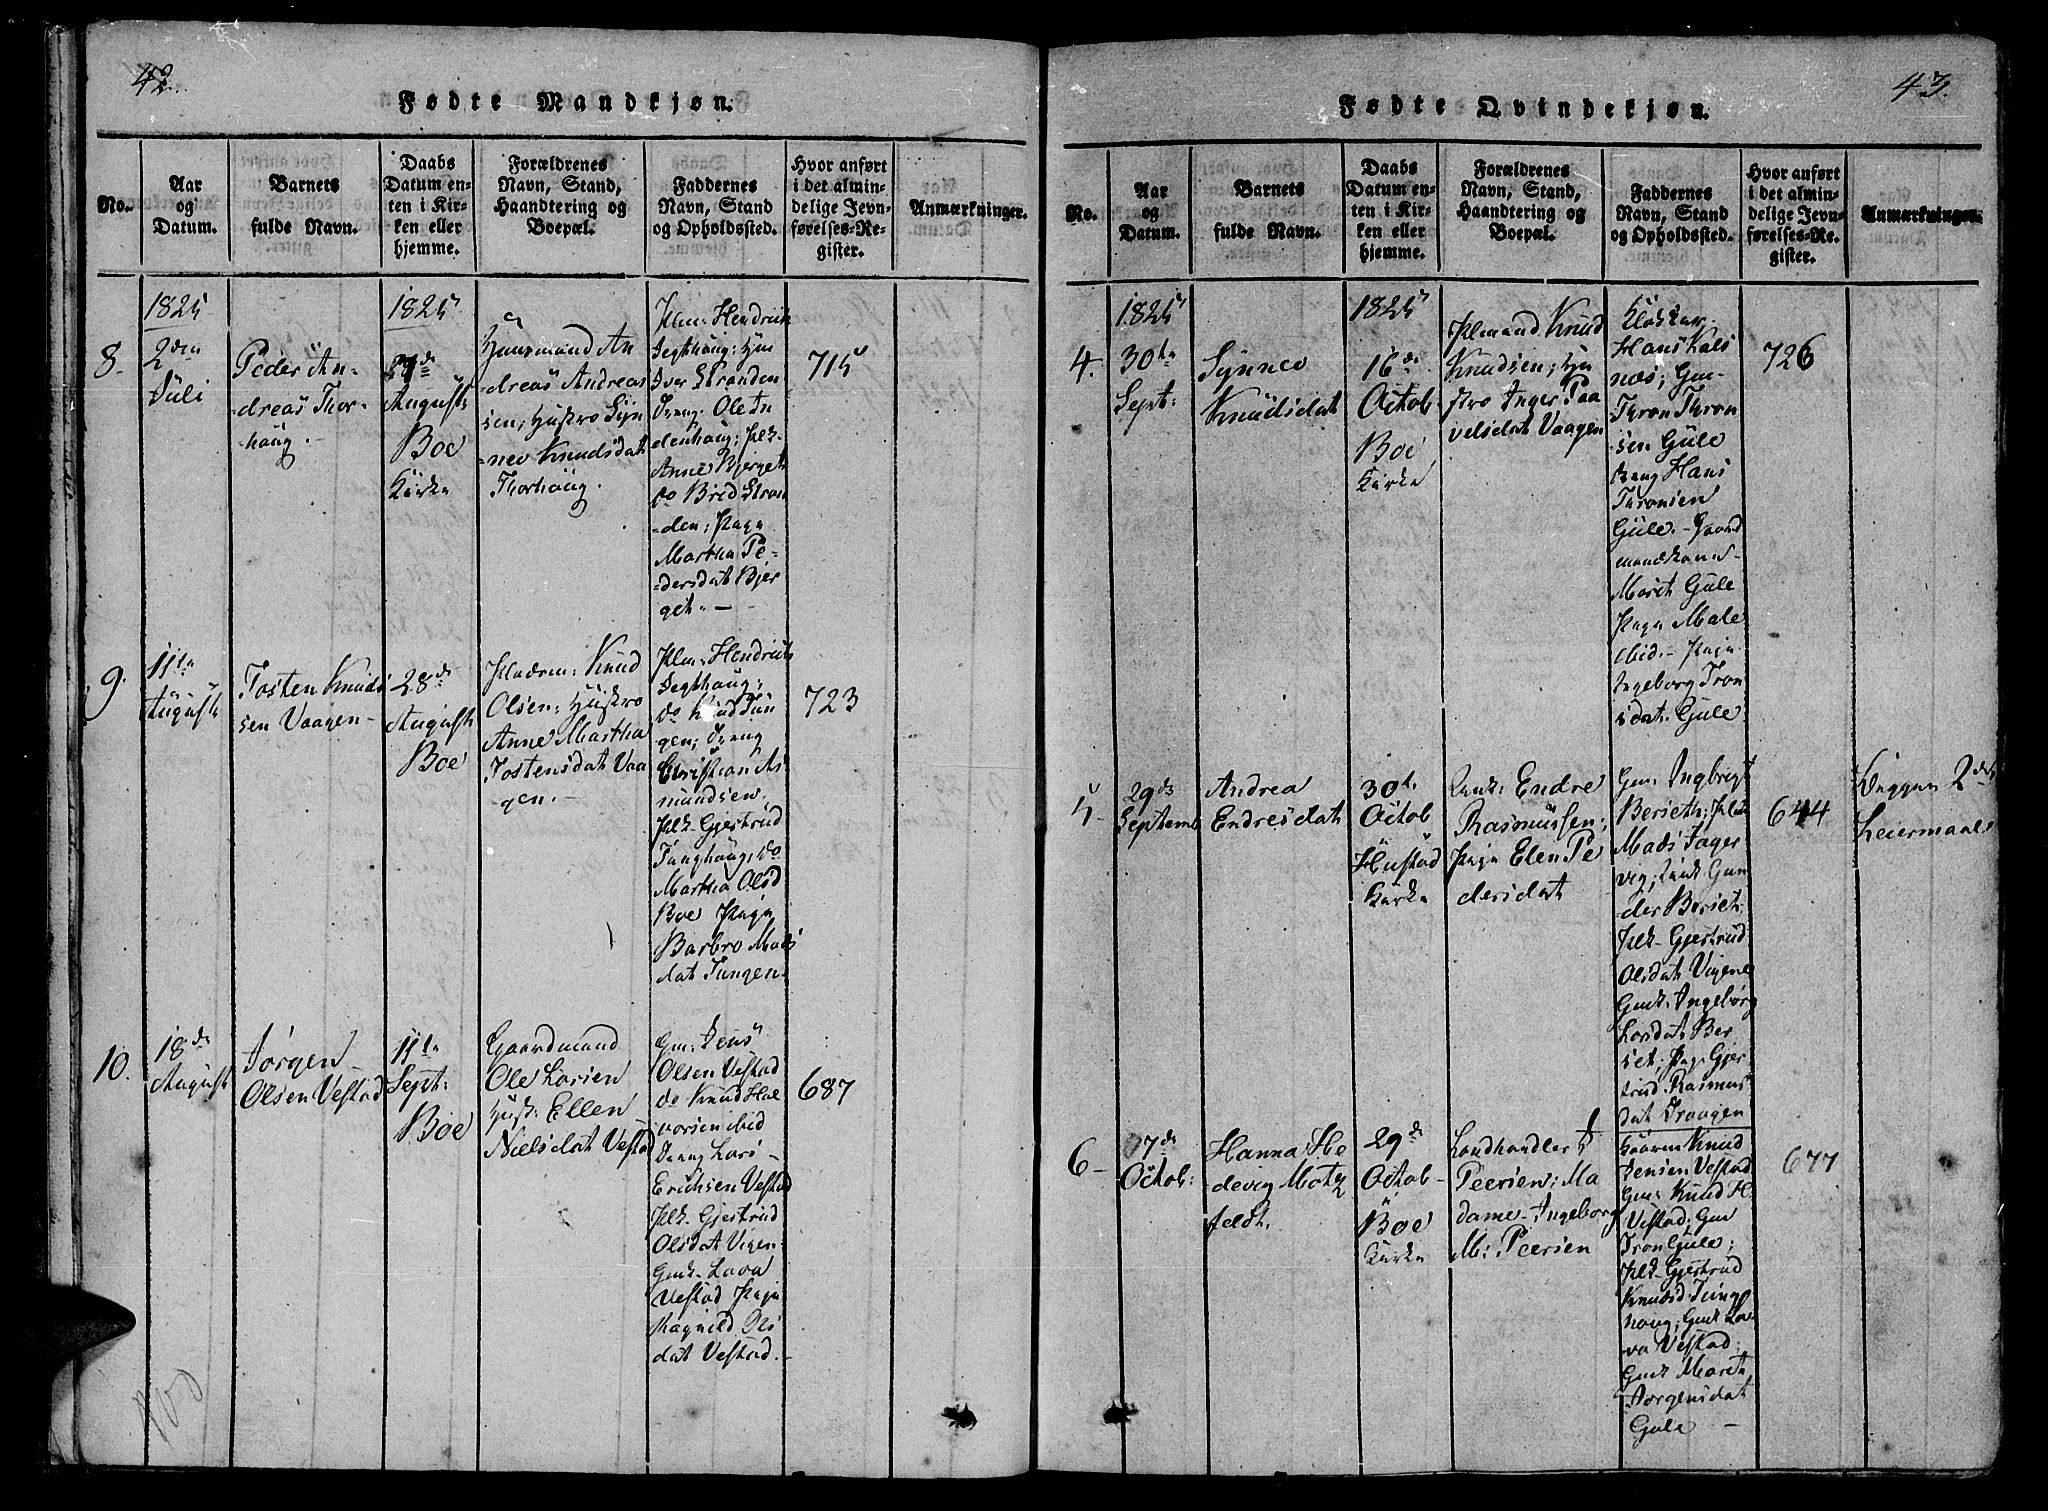 42.
Fødte Mandkjøn.
No.
Aar
og
Datum.
Barnets
fulde Navn.
Daabs
Datum en-
ten i Kir-
ken eller
hjemme.
Forældrenes
Navn, Stand,
Haandtering og
Boepæl.
Faddernes
Navn, Stand
og Opholdssted.
Hvor anført
i det almin-
delige Jevn-
førelses-Re-
gister.
Anmærkninger.
8.
1825
2den
Juli
Peder An-
dreas Thor-
haug.
1825
August
Boe
Kirke
Huusmand An
dreas Andreas
sen; Hustro Syn
nev Knudsdat
Thorhaug.
Hendrik
Iver Stranden
Dreng Ole In
denhaug;
Anne Bjerget
do Brid Stran
den; Page
Martha Pe-
dersdat Bjer
get. -
715
9.
11te
August
Tosten Knud
sen Vaagen-
28de
August
Boe
Knud
Olsen; Hustro
Anne Martha
Tostensdat Vaa
gen.-
Hendrik
do Knud Tun
gen; Dreng
Christian As
mundsen
Gjertrud
Tunghaug, do
Martha Olsd
Boe Page
Barbro Mads
dat Tungen.
723
10.
18de
August
Jørgen
Olsen Vestad
11te
Sept:
Boe
Gaardmand
Ole Larsen
Hust: Ellen
Nielsdat Vestad
Gm: Jens
Olsen Vestad
do Knud Hal
vorsen ibid
Dreng Lars
Erichsen Vestad
Gjertrud
Olsdat Vigen
Gmk- Lava
Vestad Page
Ragnild Ols
dat Vestad.-
687
43.
Fødte Qvindekjøn.
No.
Aar
og
Datum.
Barnets
fulde Navn.
Daabs
Datum en-
ten i Kir-
ken eller
hjemme.
Forældrenes
Navn, Stand,
Haandtering og
Boepæl.
Faddernes
Navn, Stand
og Opholdssted.
Hvor anført
i det almin-
delige Jevn-
førelses-Re-
gister.
Anmærkninger.
4.
1825
30te
Sept:
Synnev
Knudsdat
1825
16de
Octob
Boe
Kirke
Knud
Knudsen; Hu
stro Inger Paa
velsdat Vaagen
Klokker
Hans Kals
næs; Gm-
Thron Thron
sen Gule
Hans
Thronsen
Gule.- Gaard
mandskone
Marit Gule
Page Male
ibid.- Page
Ingeborg Tron
sdat. Gule
726
5-
29de
Septemb
Andrea
Endresdat
30te
Octob
Hustad
Kirke
Endre
Rasmussen;
Page Elen Pe
dersdat
Gm: Ingbrigt
Berseth;
Mads Jager
vig; Gun
der Berset;
Gjertrud
Olsdat Vigene
Gmk: Ingebørg
Larsdat Ber
set; Page Gjer
trud Rasmus
dat Draagen
644
Begges 2det
Leiermaal
6-
7de
Octob:
Hanna He
devig Motz
feldt.
29de
Octob-
Boe
Kirke
Landhandler
Peersen; Ma
dame Ingeborg
M: Peersen
Knud
Jensen Vestad
Gm: Knud H.
Vestad; Gm
Tron Gule;
Gjertrud
Knudsd Tung
haug; Gmk La-
va Vestad;
Gmk Marit
Jørgensdat
Gule -
677